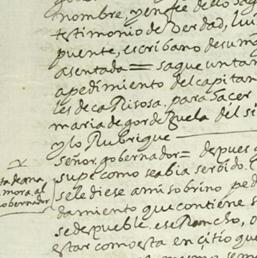 nombre, yenfee delo sag
testimonio de Verdad, lui
puente, escribano desum
asentada = saque untan
apedimiento del capitan
les de la Risosa. para hacer
maria de gordezuela del si
y lo Rubrique
señor. gobernador = depues
supe como seabia serbido
ta de ama
mora. al
gobernador
sele diese ami sobrino ped
damiento que contiene s
sedespueble. ese Rancho, o
estar como esta en citio que